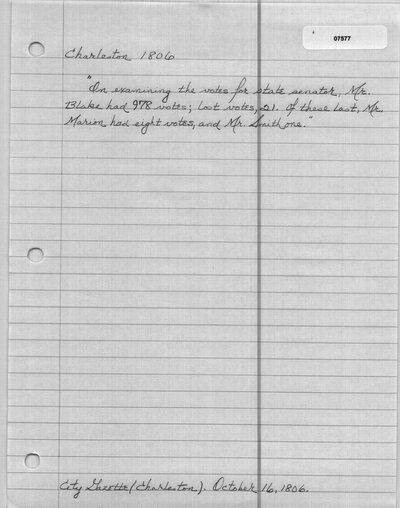 07577
Charleston 1806
"On examining the votes for state senator, Mr.
Blake had 978 votes; Lost votes, 21. Of these last, Mr.
Marion had eight votes, and Mr. Smith one."
City Gazette (Charleston). October 16, 1806.